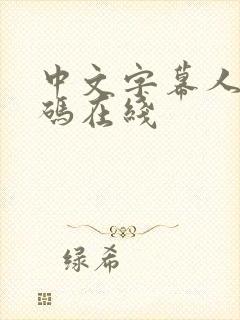 中文字幕人
碼在綫
绿希